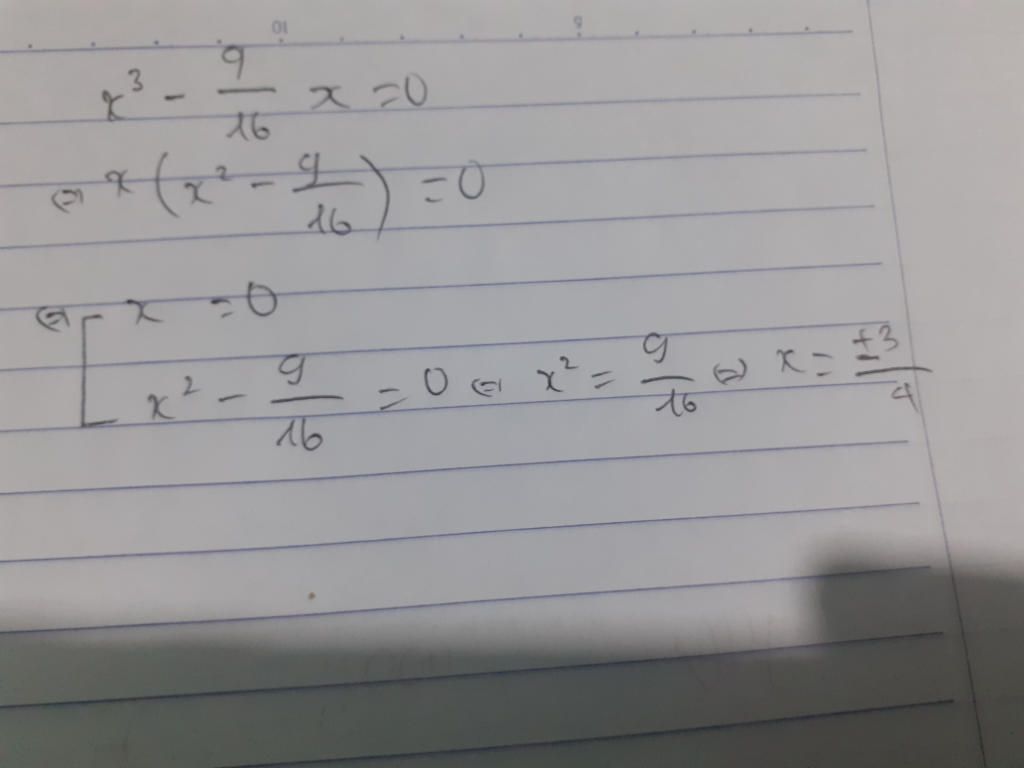 x³ - 9/16 x = 0
⇔ x(x² - 9/16) = 0
⇔ [ x = 0
x² - 9/16 = 0 ⇔ x² = 9/16 ⇔ x = ±3/4